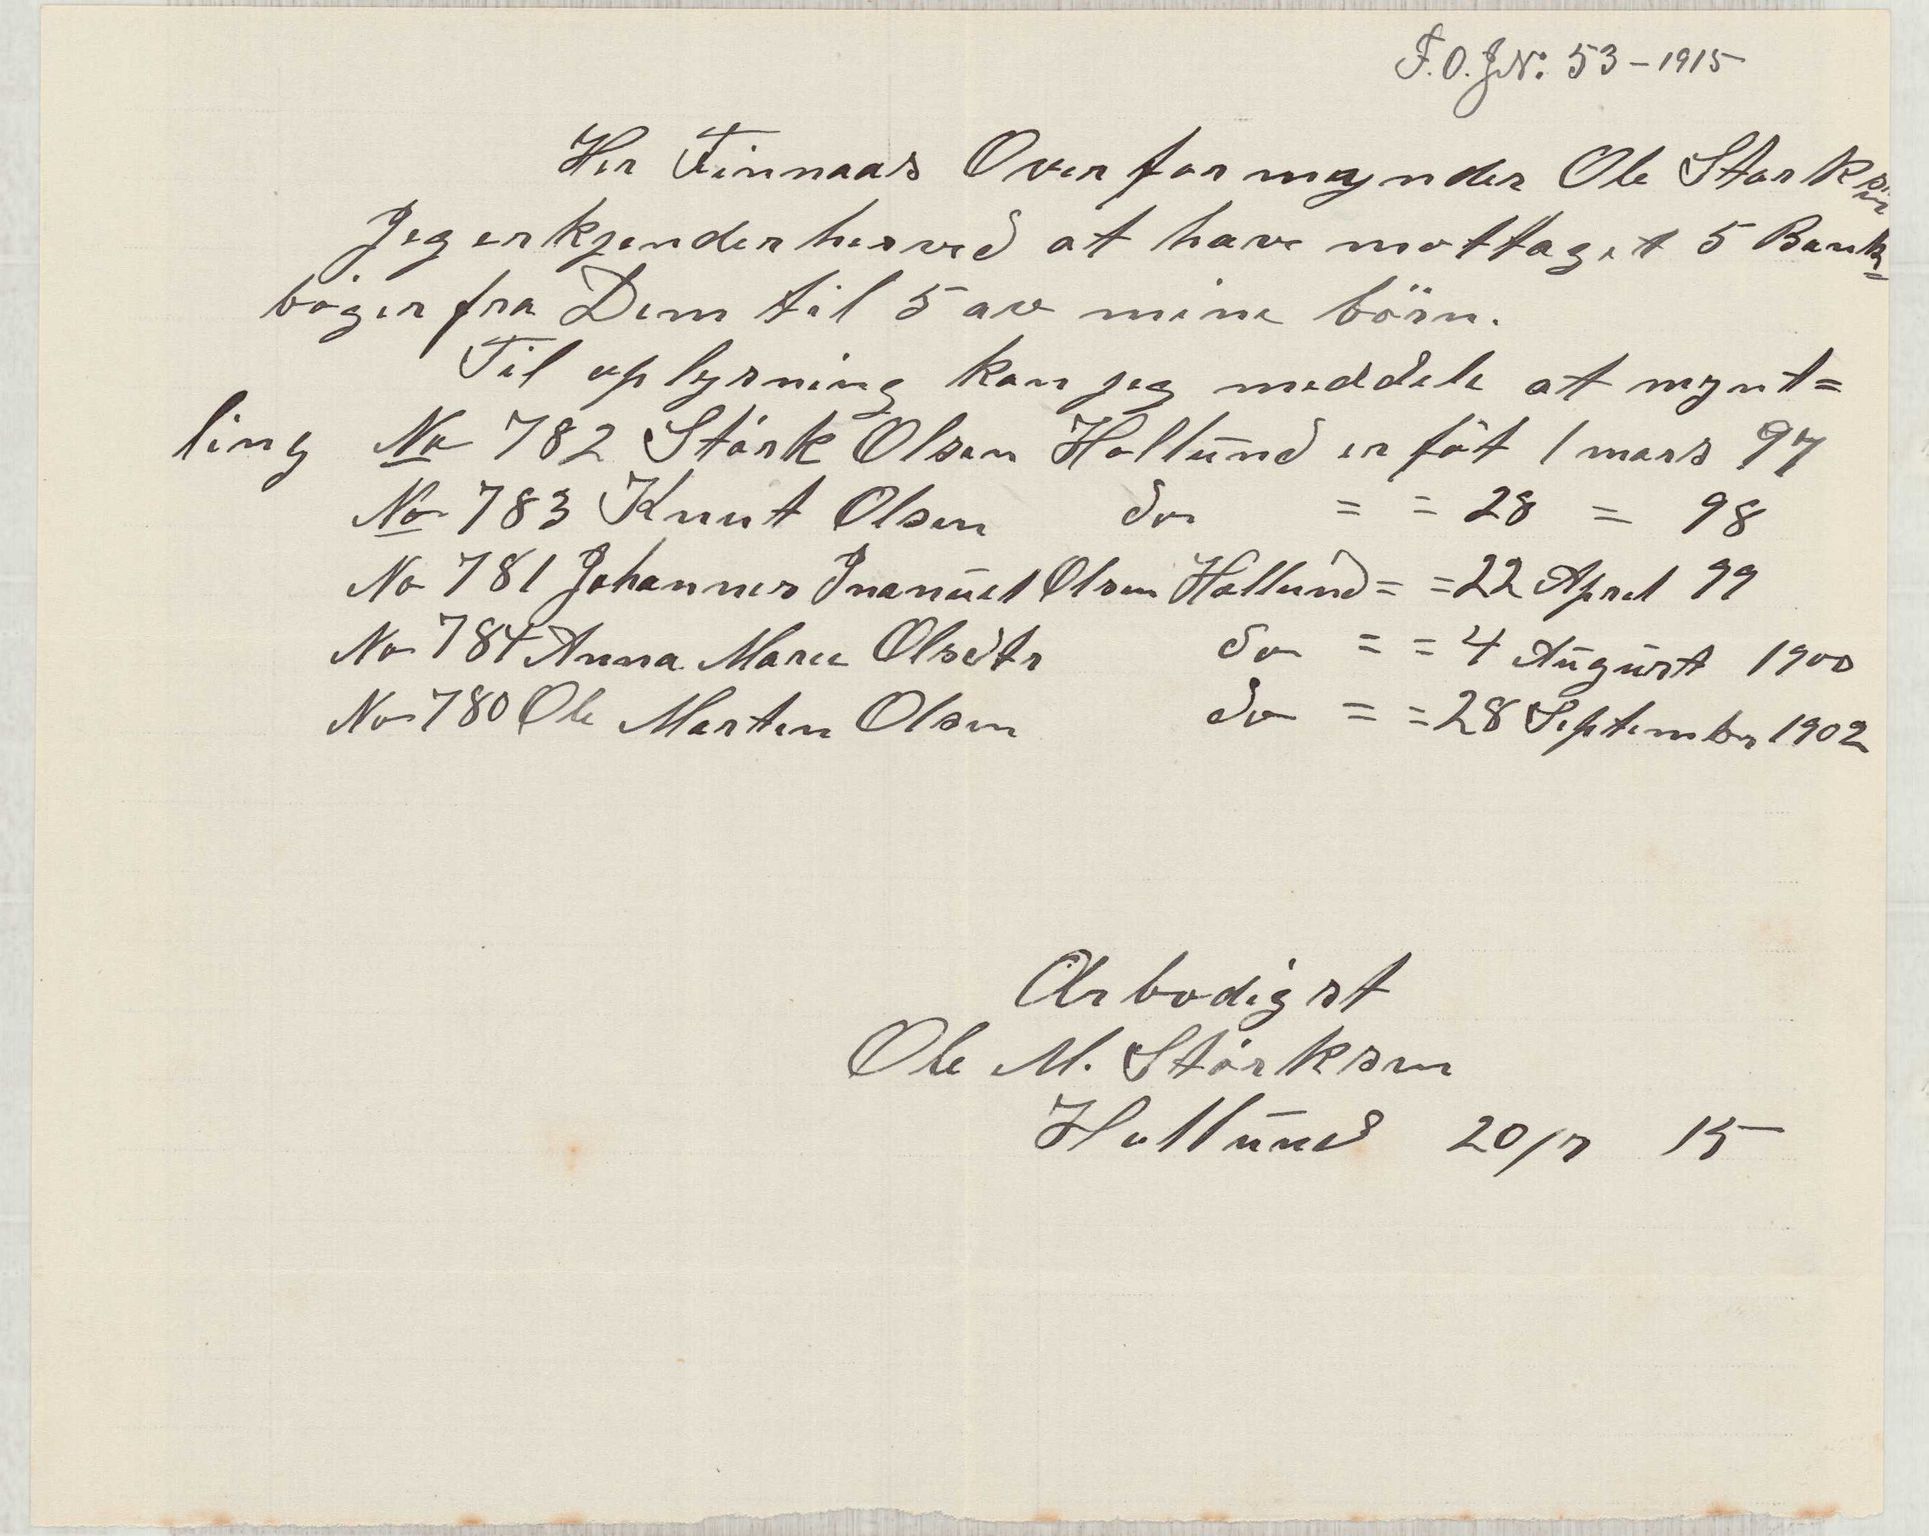 F.O.JN: 53-1915
Her Finnaas Overformynder Ole Størksen
Jeg erkjender herved at have mottaget 5 Bank=
bøger fra Dem til 5 av mine börn.
Til oplysning kan jeg meddele at mynt=
ling No 782 Störk Olsen Hollund er föt 1 mars 97
No 783 Knut Olsen do = = 28 = 98
No 781 Johannes Imanuel Olsen Hollund = = 22 April 99
No 784 Anna Marie Olsdtr do = = 4 August 1900
No 780 Ole Martin Olsen do = = 28 September 1902
Ærbødigst
Ole M. Störksen
Hollund 20/7 15